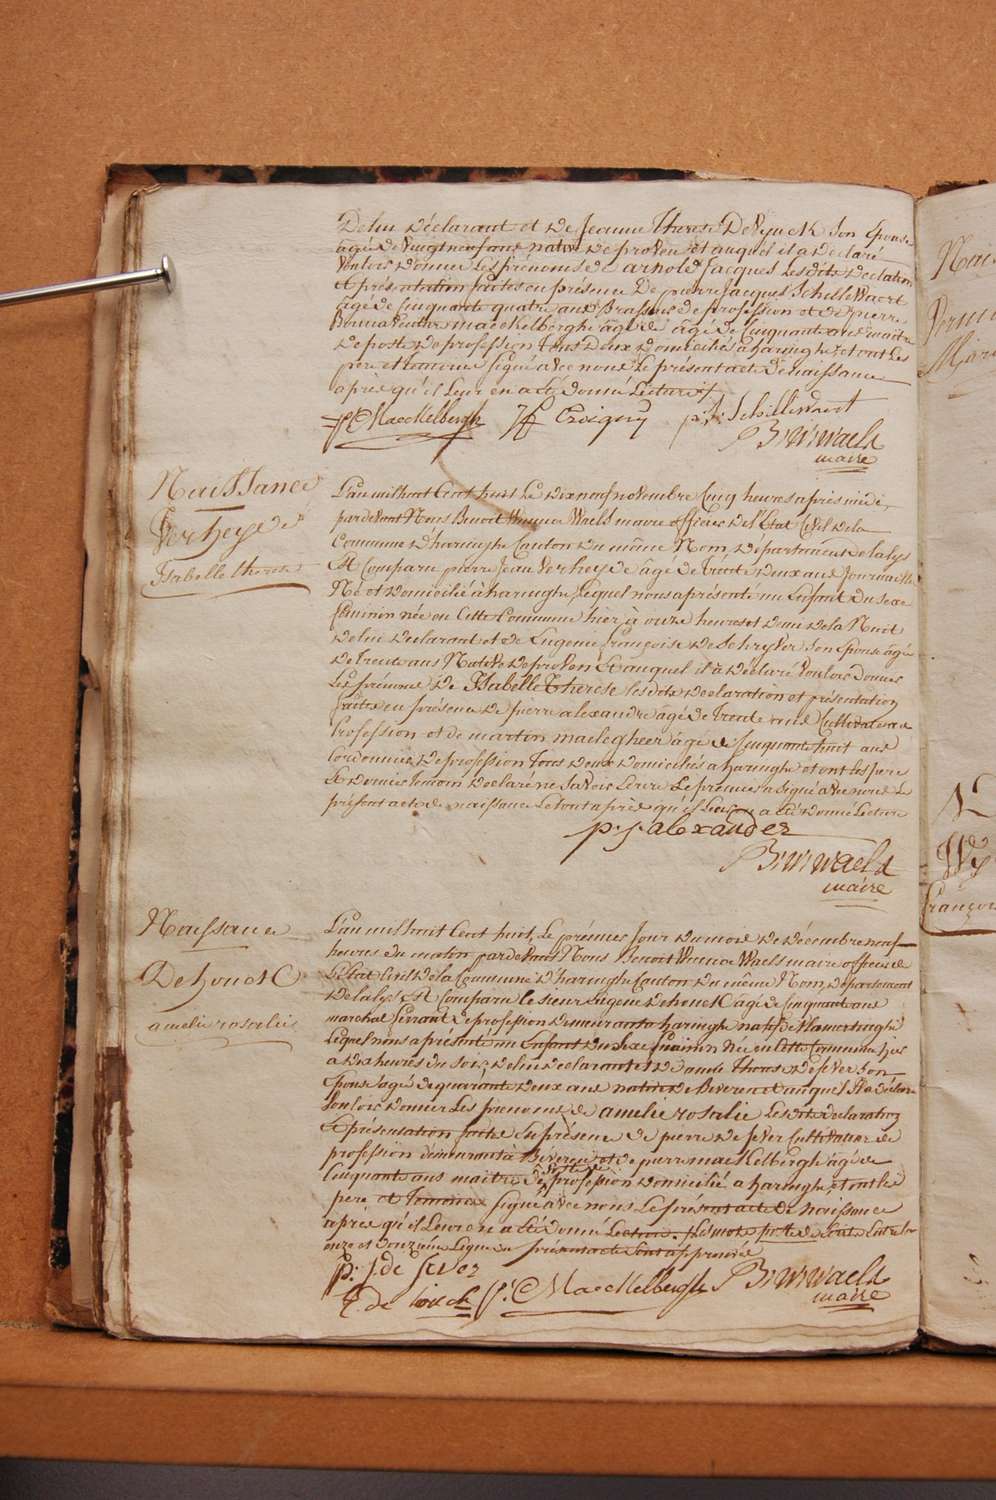 De lui Déclarant et De Jeanne Therese Devynck Son Epouse
âgée de vingt neuf ans native De proven et auquel il a Déclaré
vouloir Donner Les prénoms de arnold Jacques Lesdites Déclaration
et présentation faites en présence De pierre Jacques Schellewaert
âgé de Cinquante quatre ans Brasseur de profession et de pierre
Bonnaventure maeckelbergh âgé de Cinquante ans maitre
De poste De profession Tous Deux Domiciliés à haringhe, et ont Les
pere et temoins signé avec nous Le présent acte De naissance
après qu'il Leur en a été Donné Lecture
P. C. Maeckelbergh Crvigny p. J. Schellewaert
B. W. Waels
maire
Naissance
Verheyde
Isabelle therese
L'an mil huit Cent huit Le Dix neuf novembre Cinq heures après midi,
pardevant Nous Benoit Winnoc Waels maire officier de l'Etat Civil de la
Commune D'haringhe Canton Du même Nom, Département De la lys
Est Comparu pierre Jean Verheyde âgé de trente Deux ans Journalier
Né et Domicilié à haringhe Lequel nous a présenté un Enfant Du sexe
féminin née en Cette Commune hier à onze heures et Demie De la Nuit
De lui Déclarant et de Eugenie françoise De Schryver Son Epouse âgée
De trente ans Native De proven Et auquel il à Déclaré vouloir Donner
Les prénoms De Isabelle Therese Lesdites Déclaration et présentation
faites en présence De pierre alexandre âgé de trente Cultivateur
Profession et de martin maelegheer âgé de Cinquante huit ans
Cordonnier De profession Tous Deux Domiciliés à haringhe et ont Les pere
Et Dernier temoin Declaré ne Savoir Ecrire Le premier a signé avec nous Le
présent acte de naissance Le tout après qu'il Leur a été Donné Lecture
p. j. alexander
B. W. Waels
maire
Naissance
Dehouck
amélie rosalie
L'an mil huit Cent huit, Le premier Jour Du mois De Décembre neuf
heures du matin pardevant Nous Benoit Winnoc Waels maire officier de
L'Etat Civil De la Commune D'haringhe Canton Du même Nom, Département
De la lys Est Comparu Le sieur Eugene Dehouck âgé de Cinquante ans
marechal ferrant De profession Demeurant à haringhe natif de Vlamertinghe
Lequel nous a présenté un Enfant Du sexe feminin Née en Cette Commune hier
à Dix heures du soir, De lui Declarant et De anne Therese Defever Son
Epouse âgée de quarante Deux ans native De Beveren et auquel Il a déclaré
vouloir Donner Les prénoms de amélie rosalie Les dites Déclaration
Et présentation faites En présence de pierre De fever Cultivateur de
profession demeurant à Beveren et de pierre maeckelbergh âgé de
Cinquante ans maitre de poste de profession Domicilié à haringhe, et ont Les
pere et Temoins signé avec nous Le présent acte De Naissance
après qu'il Leur en a été donné Lecture. Les mots poste de Ecrits Entre les
onze et Douzième Lignes du présent acte Sont approuvés
p. J de fever
E. de houck P. C. Maeckelbergh B. W. Waels
maire